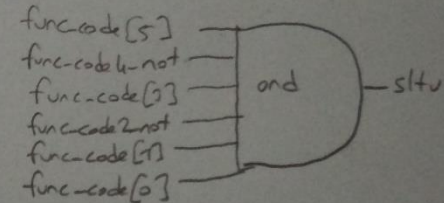 func_code[5]
func_code4_not
func_code[3]
func_code2_not
func_code[1]
func_code[0]
and
sltu